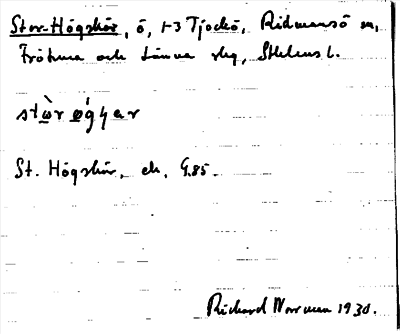 Stor-Högskär, ö, 1-3 Tjockö, Ridmansö sn,
Frötuna och Länna slg, Sthlms l.
stὼr øǵɥar
St. Högskär, ek, G.85.
Richard Norman 1930.